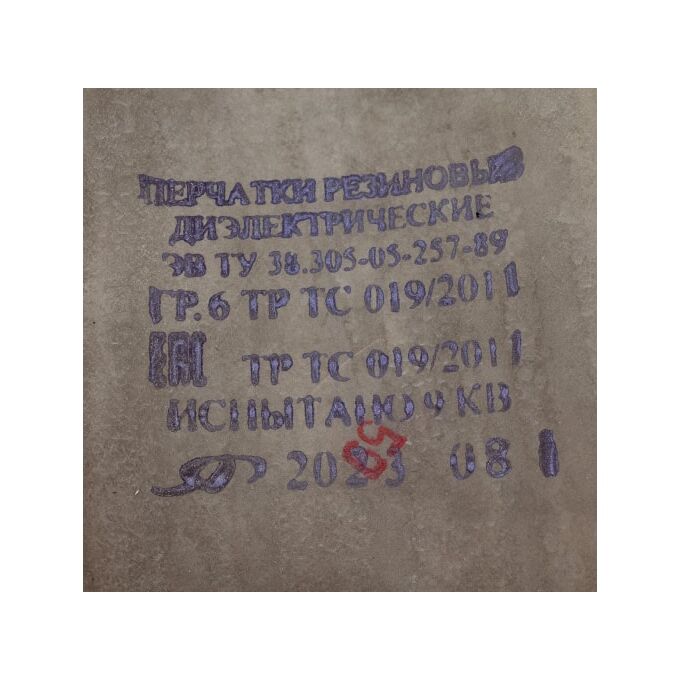 ПЕРЧАТКИ РЕЗИНОВЫЕ
ДИЭЛЕКТРИЧЕСКИЕ
ЭВ ТУ 38.305-05-257-89
ГР.6 ТР ТС 019/2011
ЕАС ТР ТС 019/2011
ИСПЫТАНО 9 КВ
2023 08 1
50